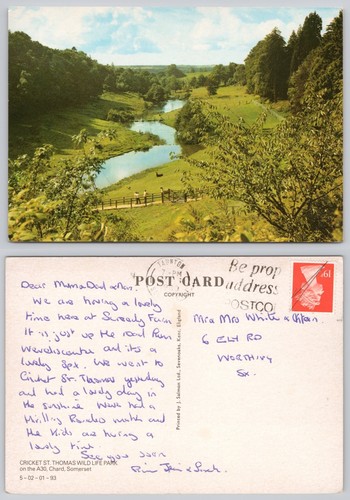 Dear Mam & Dad & Alan.
We are having a lovely
time here at Surready Farm
It is just up the road from
and it's a
lovely spot. We went to
Cricket St. Thomas yesterday
and had a lovely day in
the sunshine. Weve had a
thrilling Rambo make and
the kids are having a
lovely time.
See you soon
CRICKET ST. THOMAS WILD LIFE PARK
on the A30, Chard, Somerset
5-02-01-93
POST CARD
COPYRIGHT
Printed and Published by J. Salmon Ltd., Sevenoaks, Kent, England
TAUNTON
Be prop
address
POSTCO
19P
Mr & Mrs White & Alan
6 ELY RD
WORTHING
Sx.